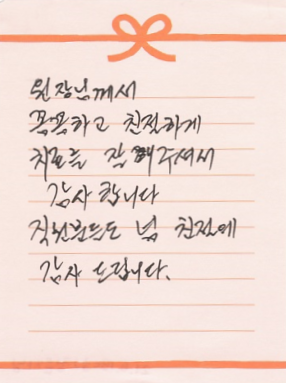 원장님께서
꼼꼼하고 친절하게
치료를 잘 해주셔서
감사 합니다
직원분들도 넘 친절에
감사 드립니다.